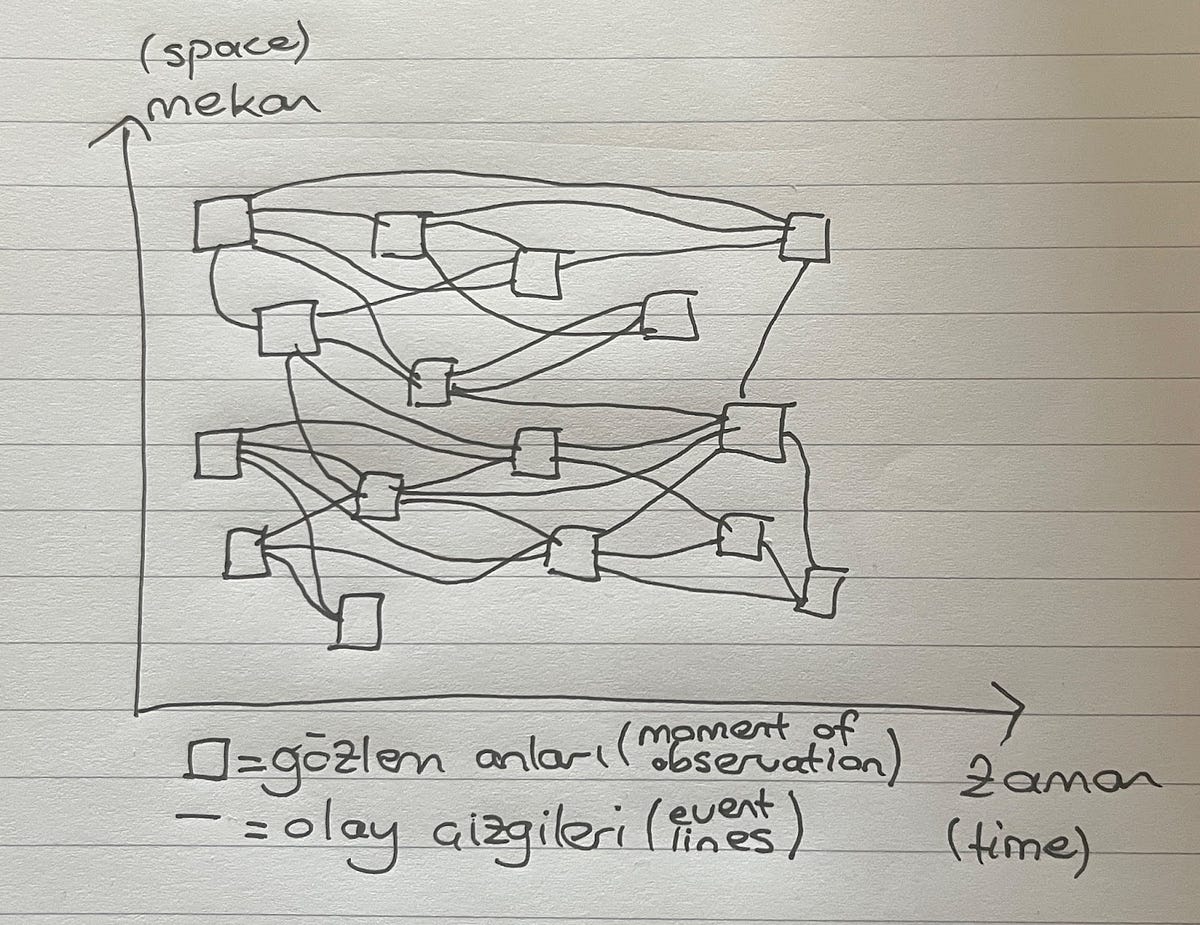 (space)
mekan
□=gözlem anları (moment of observation)
— = olay çizgileri (event lines)
zaman
(time)